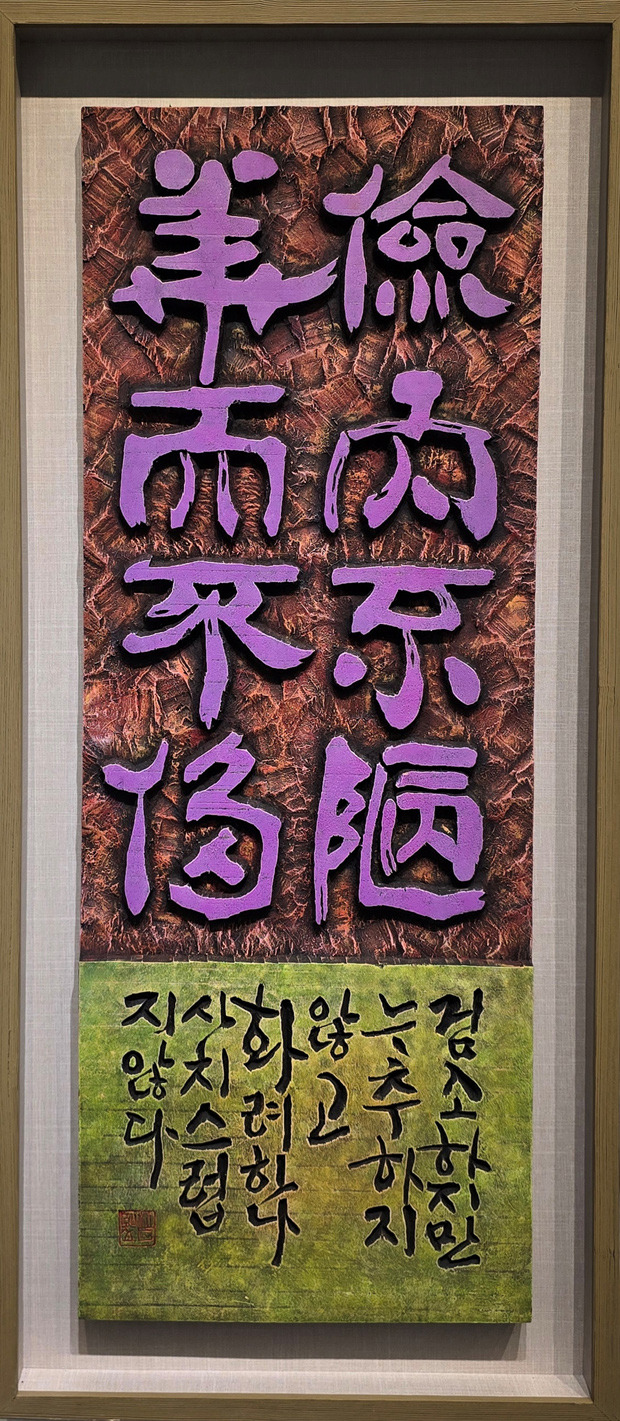 儉而不陋
華而不侈
검소하지만
누추하지
않고
화려하나
사치스럽
지않다